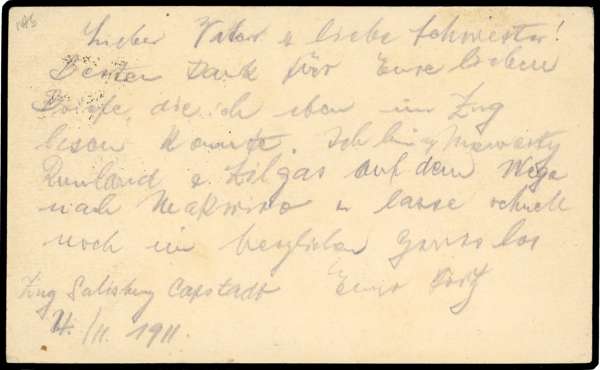 Lieber Vater u liebe Schwester!
Besten Dank für Eure lieben
Briefe, die ich eben im Zug
lesen konnte. Ich bin
auf dem Wege
nach u lasse schnell
noch ein herzlichen Gruss los
Zug Salisbury Capstadt Euer Fritz
4./11. 1911.